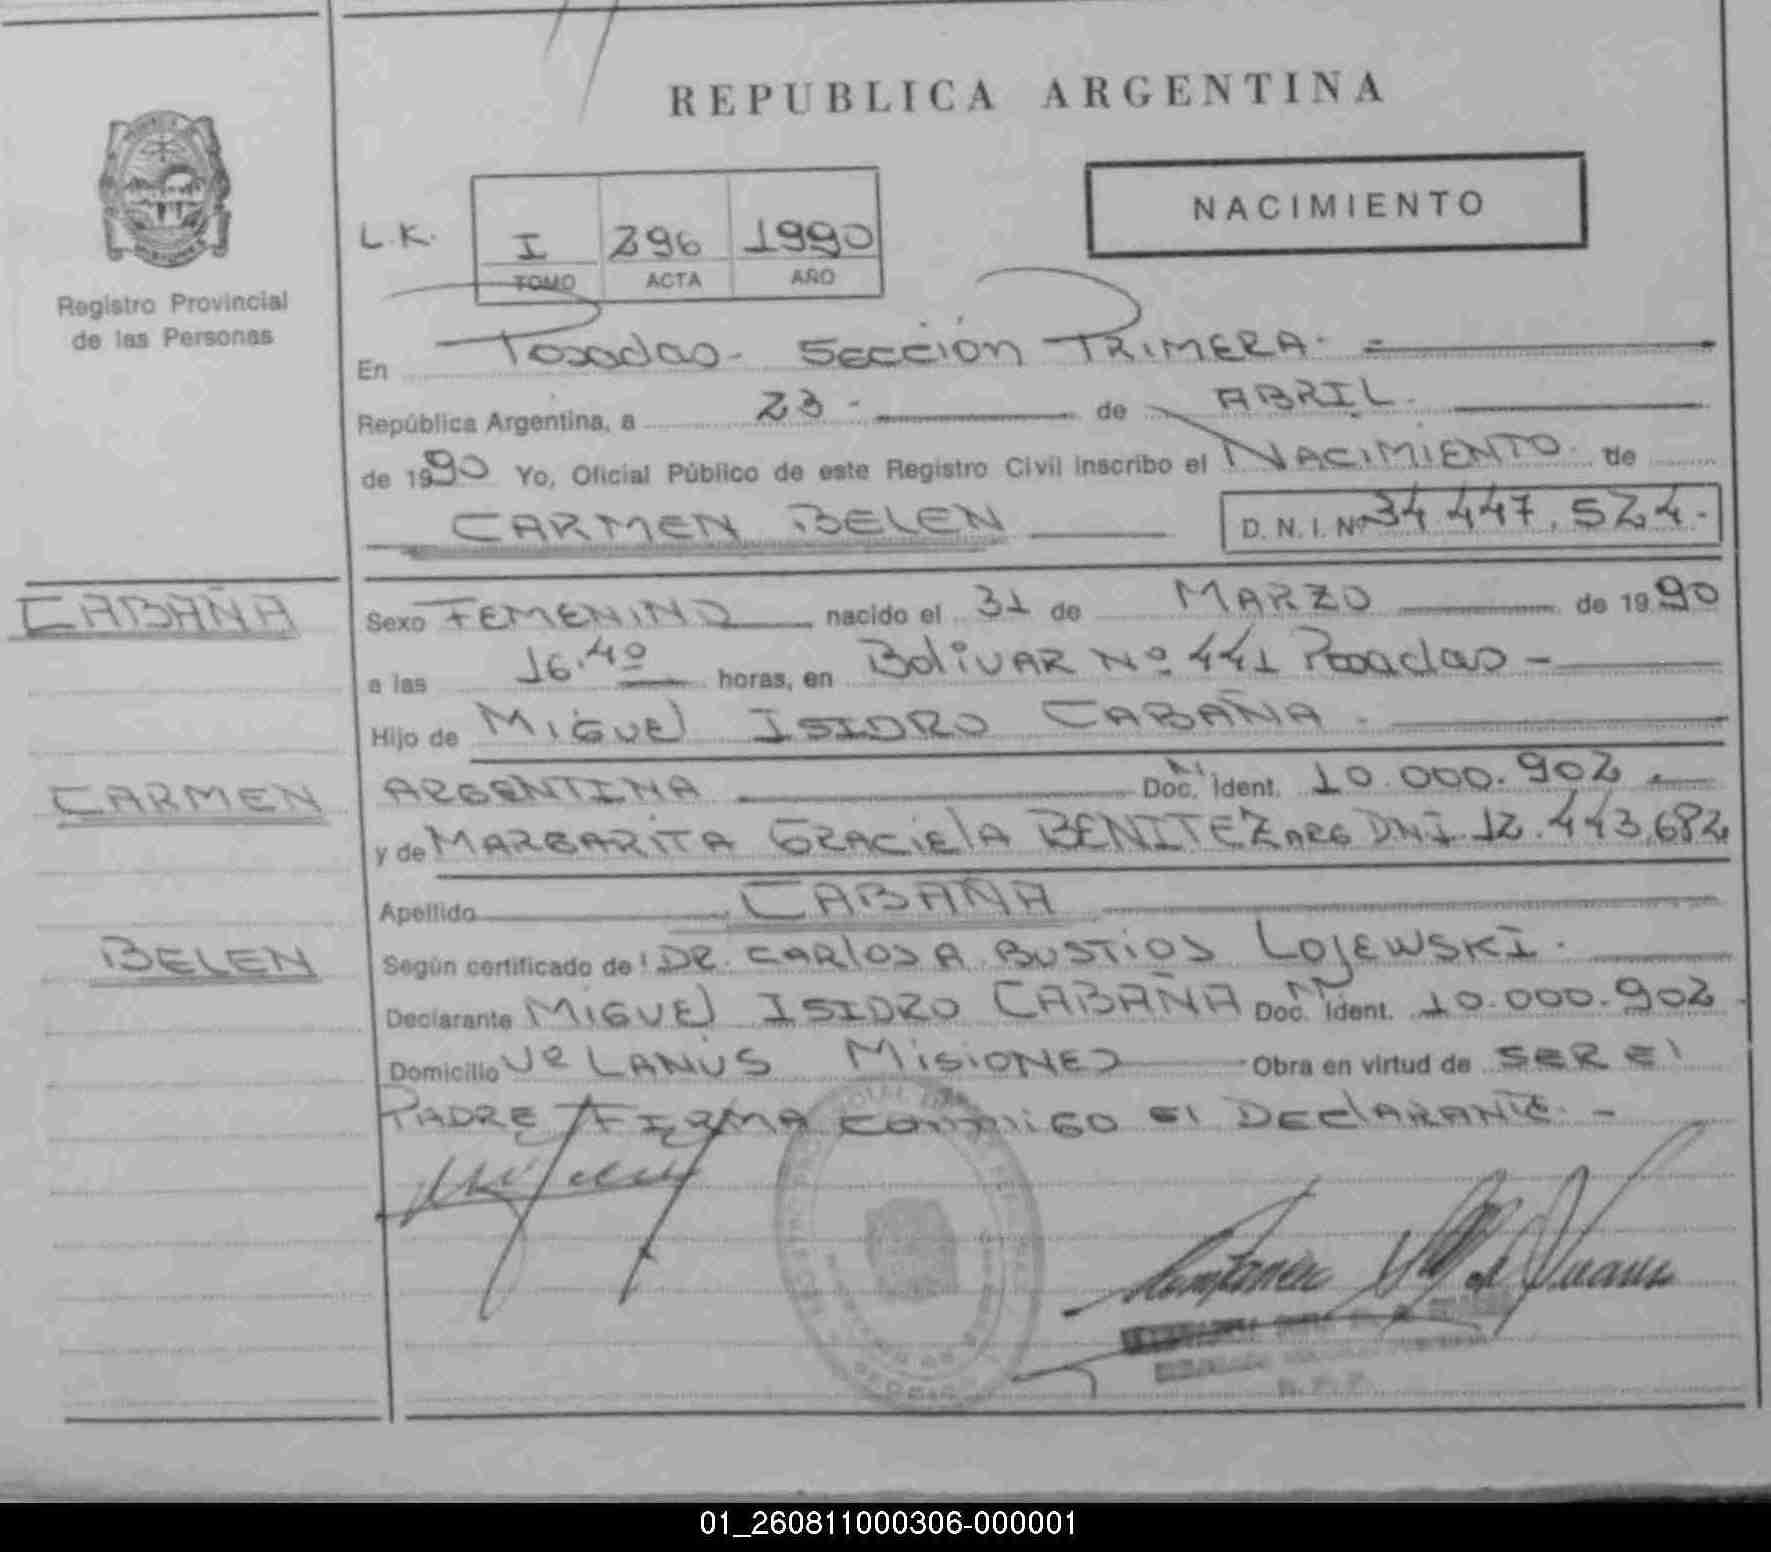 REPUBLICA ARGENTINA
NACIMIENTO
L.K. I 296 1990
TOMO ACTA AÑO
Registro Provincial
de las Personas
En Posadas - Sección PRIMERA.
República Argentina, a 23 - de ABRIL.
de 1990 Yo, Oficial Público de este Registro Civil inscribo el NACIMIENTO de
CARMEN BELEN D. N. I. Nº 34.447.524.-
CABAÑA
Sexo FEMENINO nacido el 31 de MARZO de 1990
a las 16.40 horas, en BoliVAR Nº 441 Posadas -
Hijo de MiGUEl ISIDRO CABAÑA.
CARMEN
ARGENTINA Doc. Ident. 10.000.902.
y de MARGARiTA GRACiElA BENITEZ ARG DNI 12.443.682
Apellido CABAÑA
BELEN
Según certificado de: DR. CARlOS A. BUSTiOS LOJEWSKI.
Declarante MiGUEl ISIDRO CABAÑA Doc. Ident. 10.000.902.
Domicilio Vª LANUS MisiONES Obra en virtud de SER El
PADRE FIRMA conmiGO El DEClARANTE. -
01_260811000306-000001